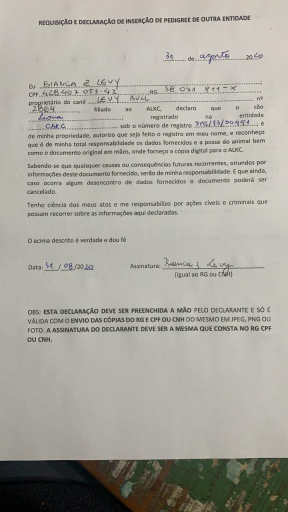 REQUISIÇÃO E DECLARAÇÃO DE INSERÇÃO DE PEDIGREE DE OUTRA ENTIDADE
31 de agosto 2020
Eu BIANCA Z LEVY
CPF RG
proprietário do canil LEVY BULL nº
filiado ao ALKC, declaro que o cão
registrado na entidade
CBKC sob o número de registro é
de minha propriedade, autorizo que seja feito o registro em meu nome, e reconheço
que é de minha total responsabilidade os dados fornecidos e a posse do animal bem
como o documento original em mãos, onde forneço a cópia digital para o ALKC.
Sabendo-se que quaisquer causas ou consequências futuras recorrentes, oriundos por
informações deste documento fornecido, serão de minha responsabilidade. E que ainda,
caso ocorra algum desencontro de dados fornecidos o documento poderá ser
cancelado.
Tenho ciência dos meus atos e me responsabilizo por ações cíveis e criminais que
possam recorrer sobre as informações aqui declaradas.
O acima descrito é verdade e dou fé
Data: 31 / 08 /2020 Assinatura: Bianca Z Levy
(igual ao RG ou CNH)
OBS: ESTA DECLARAÇÃO DEVE SER PREENCHIDA A MÃO PELO DECLARANTE E SÓ É
VÁLIDA COM O ENVIO DAS CÓPIAS DO RG E CPF OU CNH DO MESMO EM JPEG, PNG OU
FOTO. A ASSINATURA DO DECLARANTE DEVE SER A MESMA QUE CONSTA NO RG CPF
OU CNH.